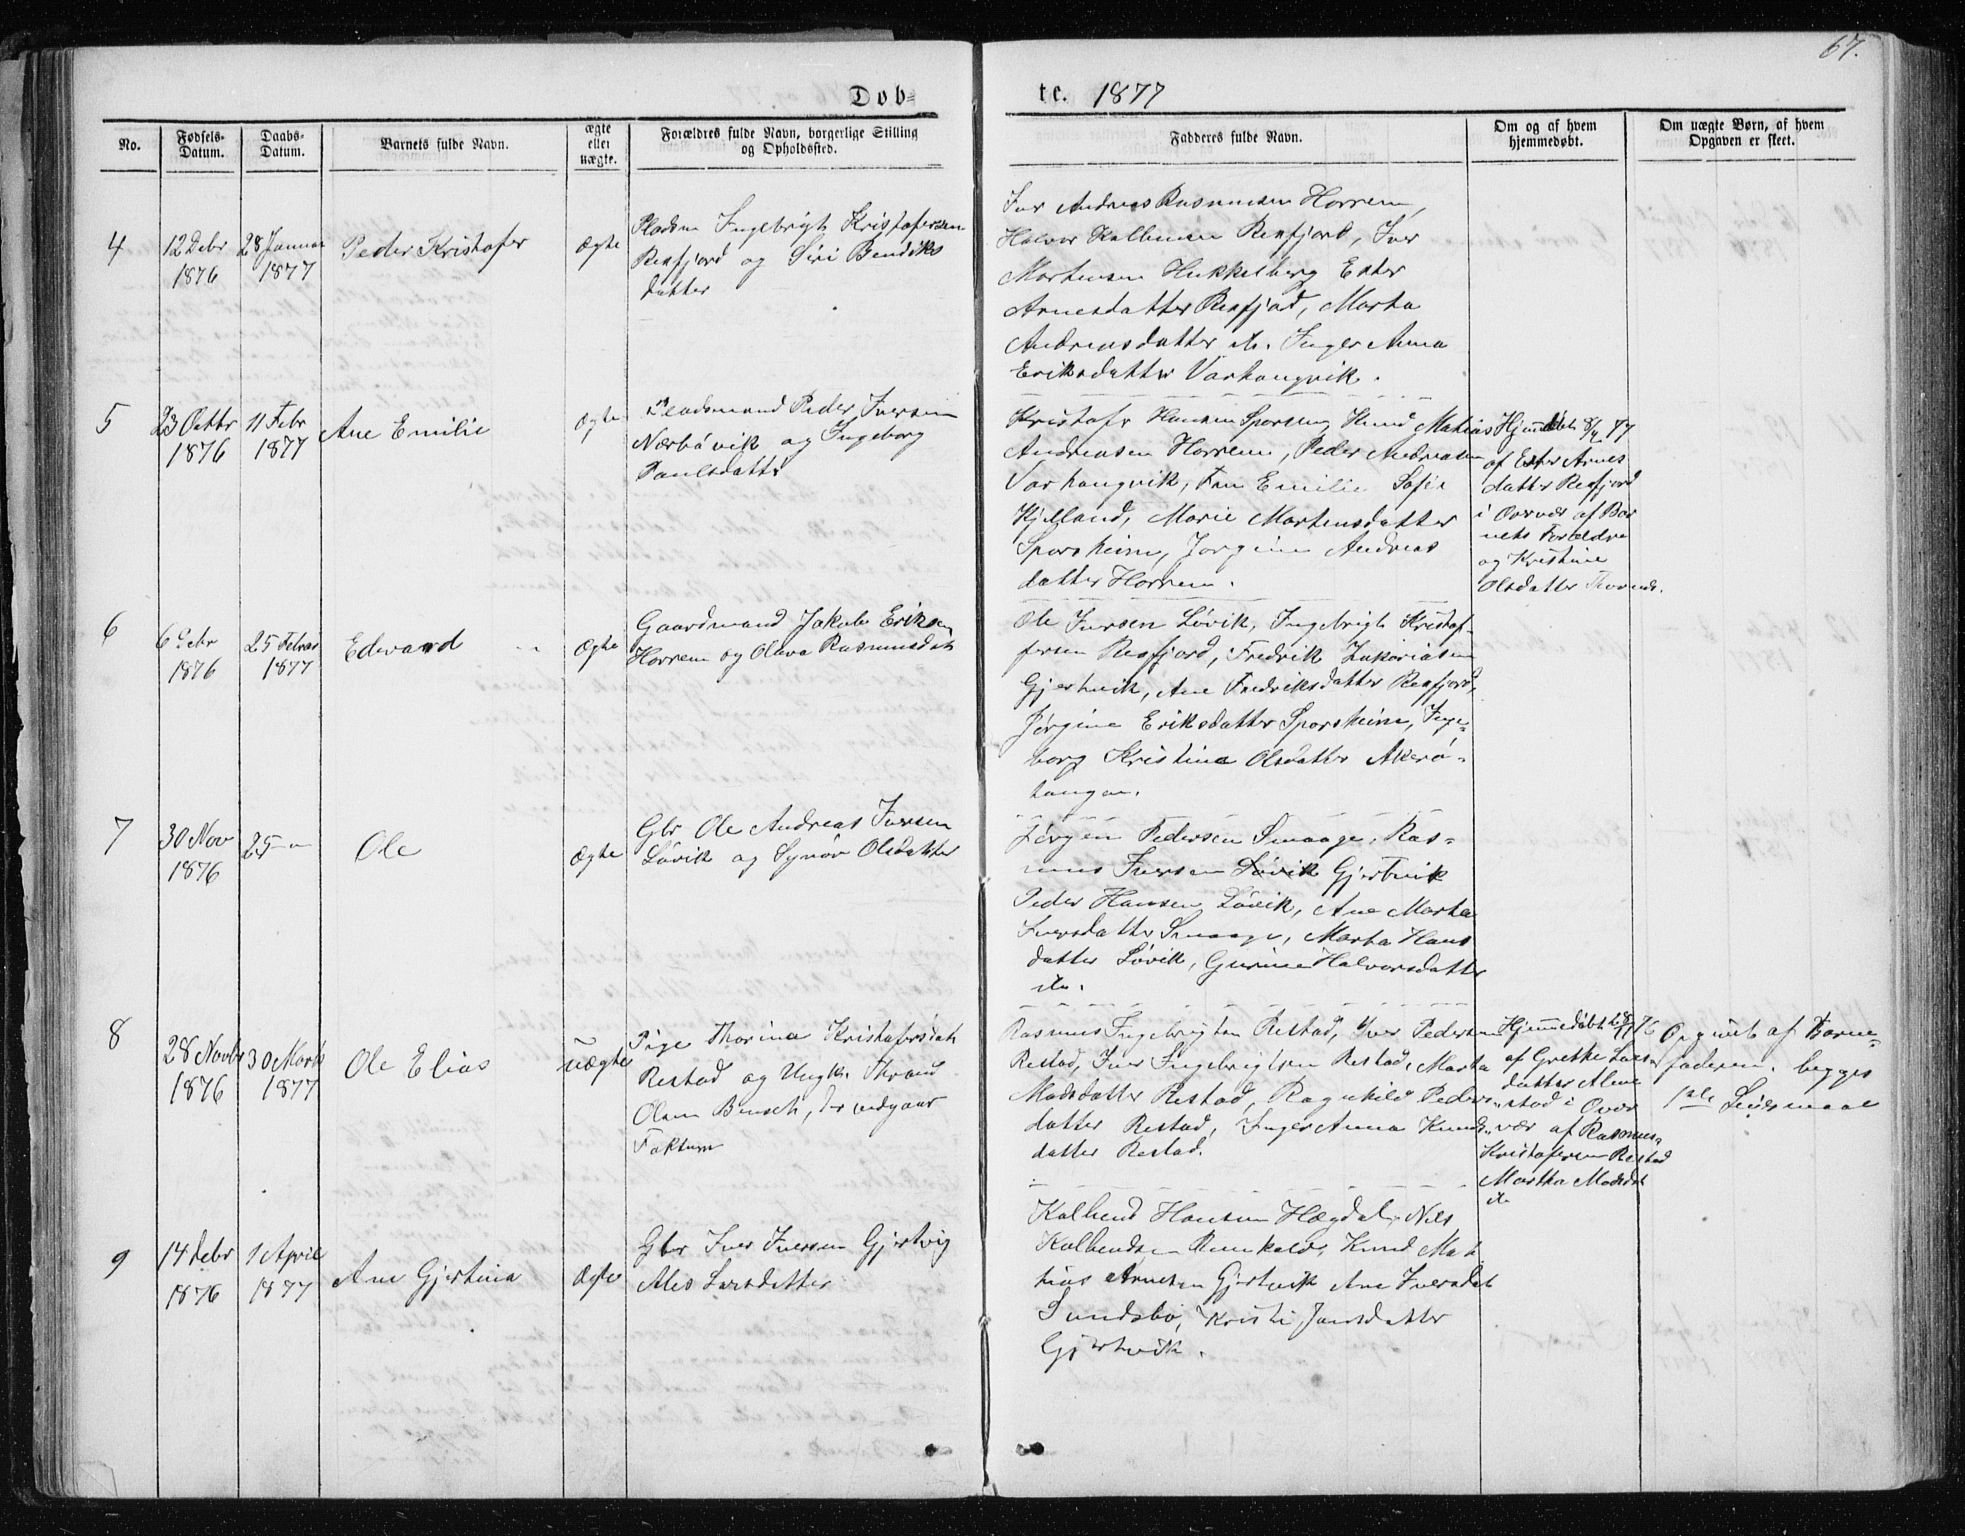 67.
Døb- te. 1877
No. Fødsels-Datum. Daabs-Datum. Barnets fulde Navn. ægte eller uægte. Forældres fulde Navn, borgerlige Stilling og Opholdssted. Fadderes fulde Navn. Om og af hvem hjemmedøbt. Om uægte Børn, af hvem Opgaven er skeet.
4
12 Debr
1876
28 Januar
1877
Peder Kristofer
Ægte
Pladsm Ingebrigt Kristofersen
Rexfjord og Siri Bendiks
datter
Iver Andreas Rasmusen Horrem,
Halvor Kolbensen Rexfjord, Iver
Mortensen Hukkelberg Ester
Arnesdatter Rexfjord, Marta
Andreasdatter do. Inger Anna
Eriksdatter Varhaugvik.
5
23 Octbr
1876
11 Febr
1877
Ane Emilie
Ægte
Pladsmand Peder Iversen
Nærbøvik og Ingeborg
Paulsdatter
Kristofr Hansen Sporsem, Knud Matias
Andreasen Horrem, Peder Andreasen
Varhaugvik, Frn Emilie Sofie
Kjelland, Marie Martensdatter
Sporsheim, Jorgine Andreas
datter Horrem.
Hjemdøbt 8/4 77
af Ester Arnes
datter Rexfjord
i Overvær af Bar
nets Forældre
og Kristine
Olsdatter
6
6 Debr
1876
25 Febrar
1877
Edvard
Ægte
Gaardmand Jakob Eriksen
Horrem og Olava Rasmusdat
Ole Iversen Løvik, Ingebrigt Kristof-
fersen Rexfjord, Fredrik Zakariasen
Gjertvik, Ane Fredriksdatter Rexfjord,
Jørgine Eriksdatter Sporsheim, Inge-
borg Kristine Olsdatter Akerø-
haugen.
7
30 Nov
1876
25 "
Ole
Ægte
Gbr Ole Andreas Iversen
Løvik og Synøv Olsdatter
Jørgen Pedersen Smaage, Ras-
mus Iversen Løvik Gjertvik
Peder Hansen Løvik, Ane Marta
Iversdatter Smaage, Marta Hans
datter Løvik, Gurine Halvorsdatter
do.
8
28 Novbr
1876
30 Marts
1877
Ole Elias
uægte
Pige Thorina Kristofersdat
Restad og Ungk. Thrond
Olsen Bersch, der vedgaar
Faktum
Rasmus Ingebrigtsen Restad, Iver Pedersen
Restad, Iver Ingebrigtsen Restad, Marta
Madsdatter Restad, Ragnhild Peders
datter Restad, Inger Anna Knuds
datter Restad.
Hjemmedøbt 76
af Grethe Lars
datter Alme
stad i Over
vær af Rasmus
Kristofersen Restad
Martha Madsdat
do
Opgivet af Barne-
faderen. begges
1ste Leiermaal
9
14 Debr
1876
1 April
1877
Ane Gjertina
Ægte
Gbr Iver Iversen Gjertvig
Ales Larsdatter
Kolbend Hansen Hægdal, Nils
Kolbendsen Remkold, Knud Mat
hias Arnesen Gjertvik Ane Iversdat
Sundsbø, Kristi Jonsdatter
Gjertvik.